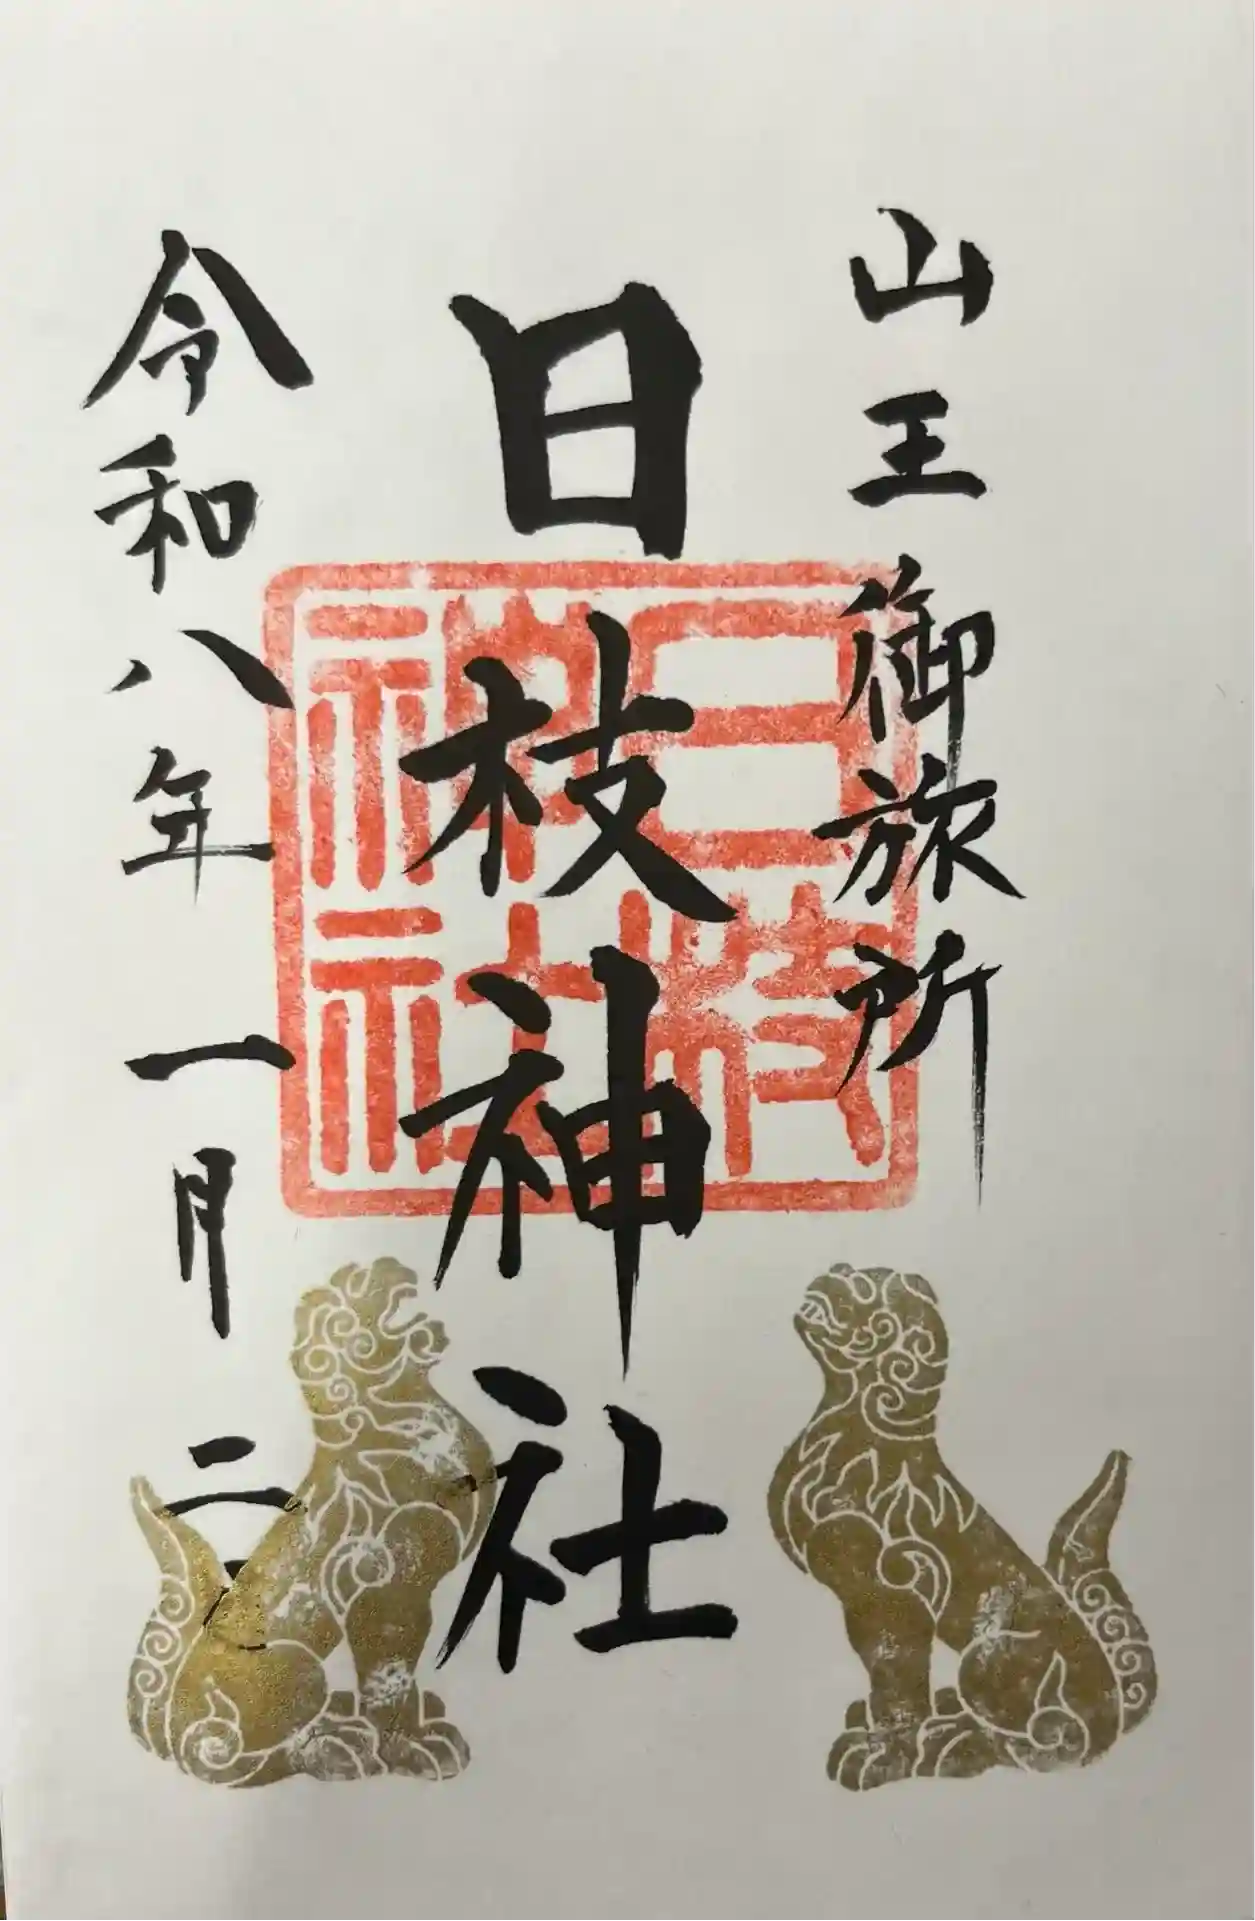 山王御旅所
日枝神社
令和八年一月二日
日枝
神社